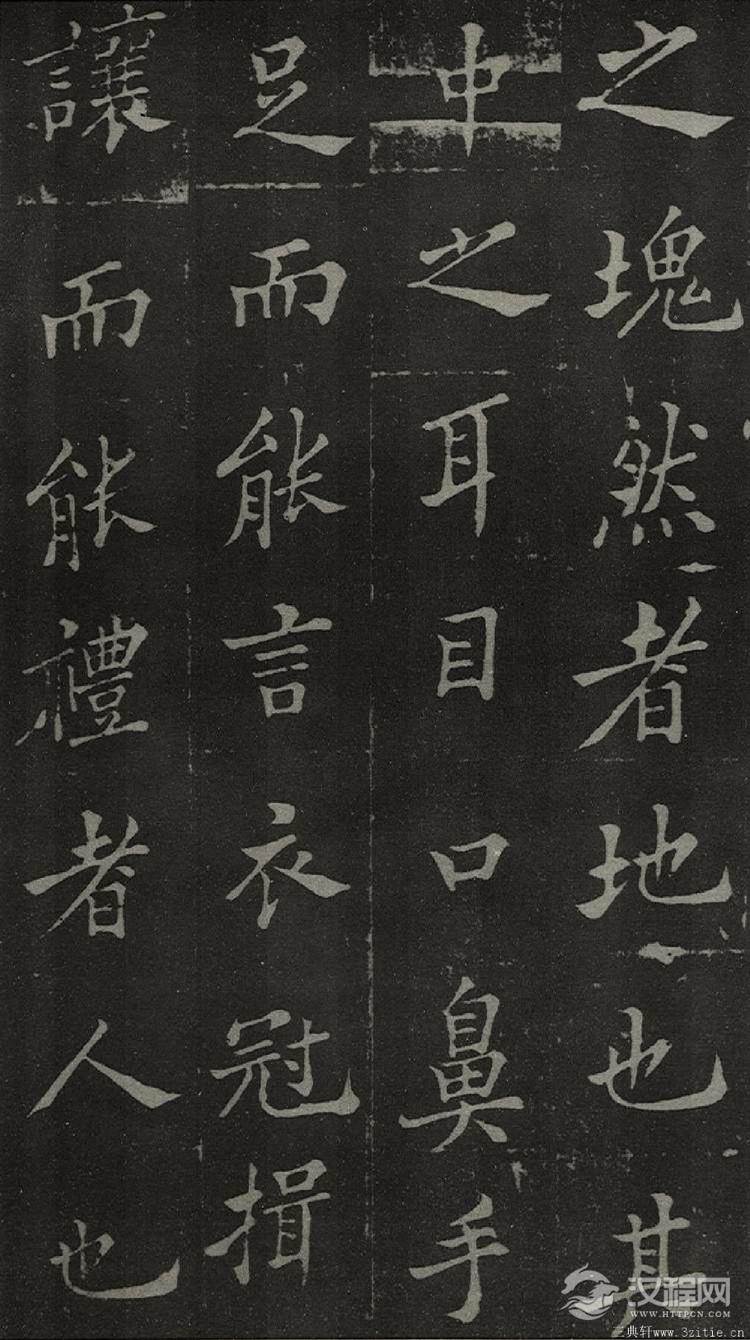 之塊然者地也其
中之耳目口鼻手
足而能言衣冠揖
讓而能禮者人也
汉程网
WWW.HTTPCN.COM
三典轩www.3zitie.cn